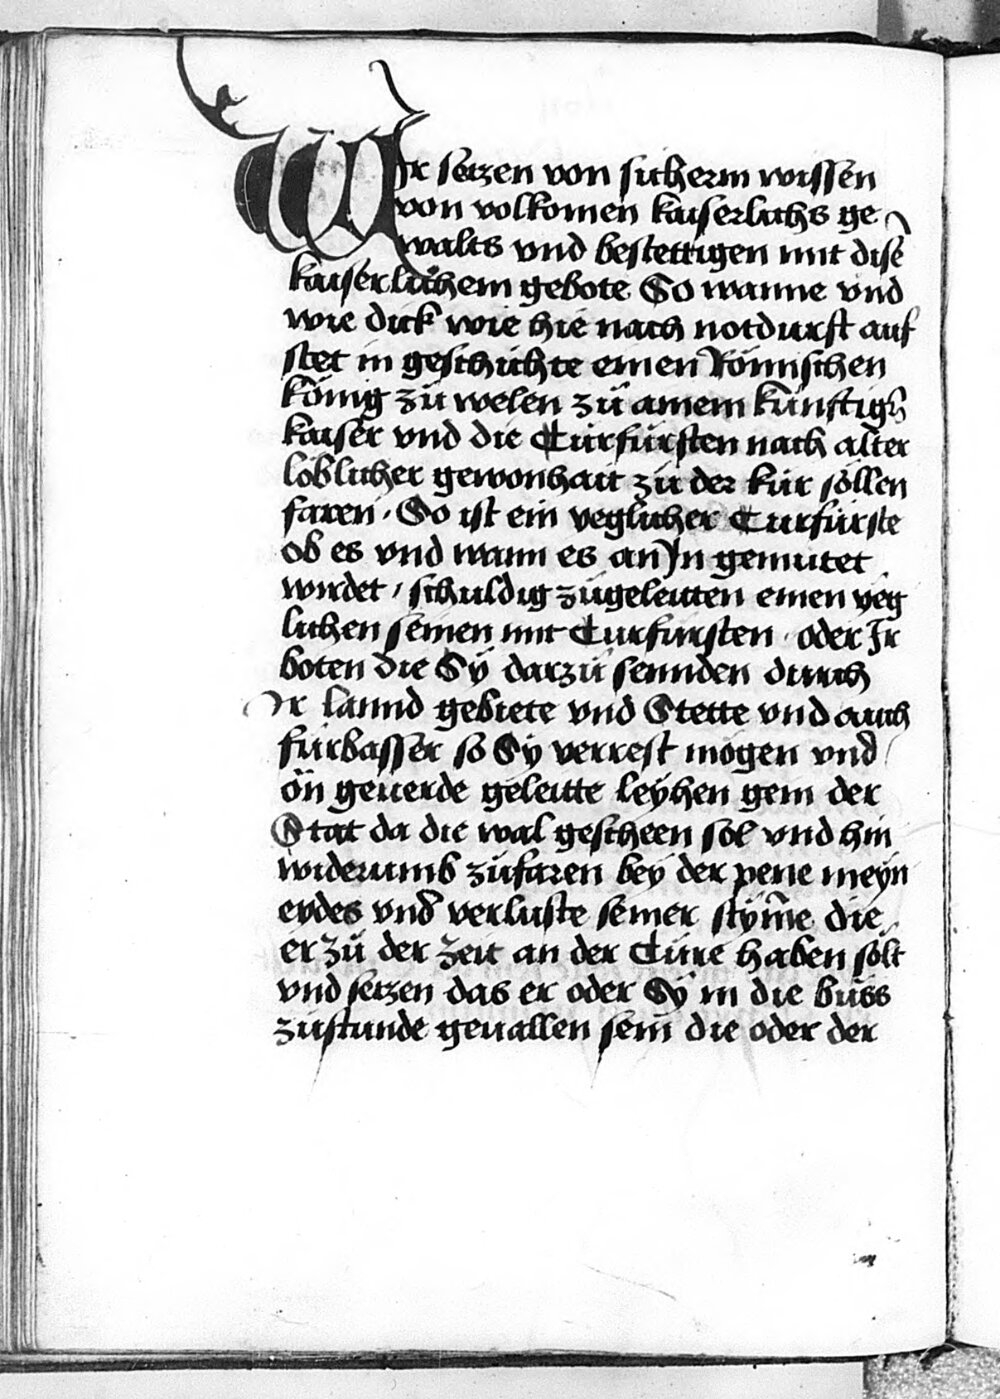 Wir setzen von sicherm wissen
von volkomen kaiserlichs ge
walts vnd bestettigen mit dise
kaiserlichem gebote So wanne vnd
wie dick wie hie nach notdurft auf
stet in geschichte einen Römischen
könig zů welen zů ainem künftigen
kaiser vnd die Curfürsten nach alter
löblicher gewonhait zů der kür söllen
faren · So ist ein yeglicher Curfürste
ob es vnd wann es an Jn gemutet
wirdet / schuldig zůgeleiten einen yeg
lichen seinen mit Curfürsten / oder Jr
boten die Sÿ darzů sennden durch
Jr lannd gebiete vnd Stette vnd auch
fürbasser so Sÿ verrest mögen vnd
ön geuerde geleitte leÿhen gein der
Stat da die wal gescheen sol vnd hin
widerumb zůfaren beÿ der pene meÿn
eydes vnd verluste seiner stÿme die
er zů der zeit an der Cure haben sölt
vnd setzen das er oder Sÿ in die bůss
zůstunde geuallen sein die oder der